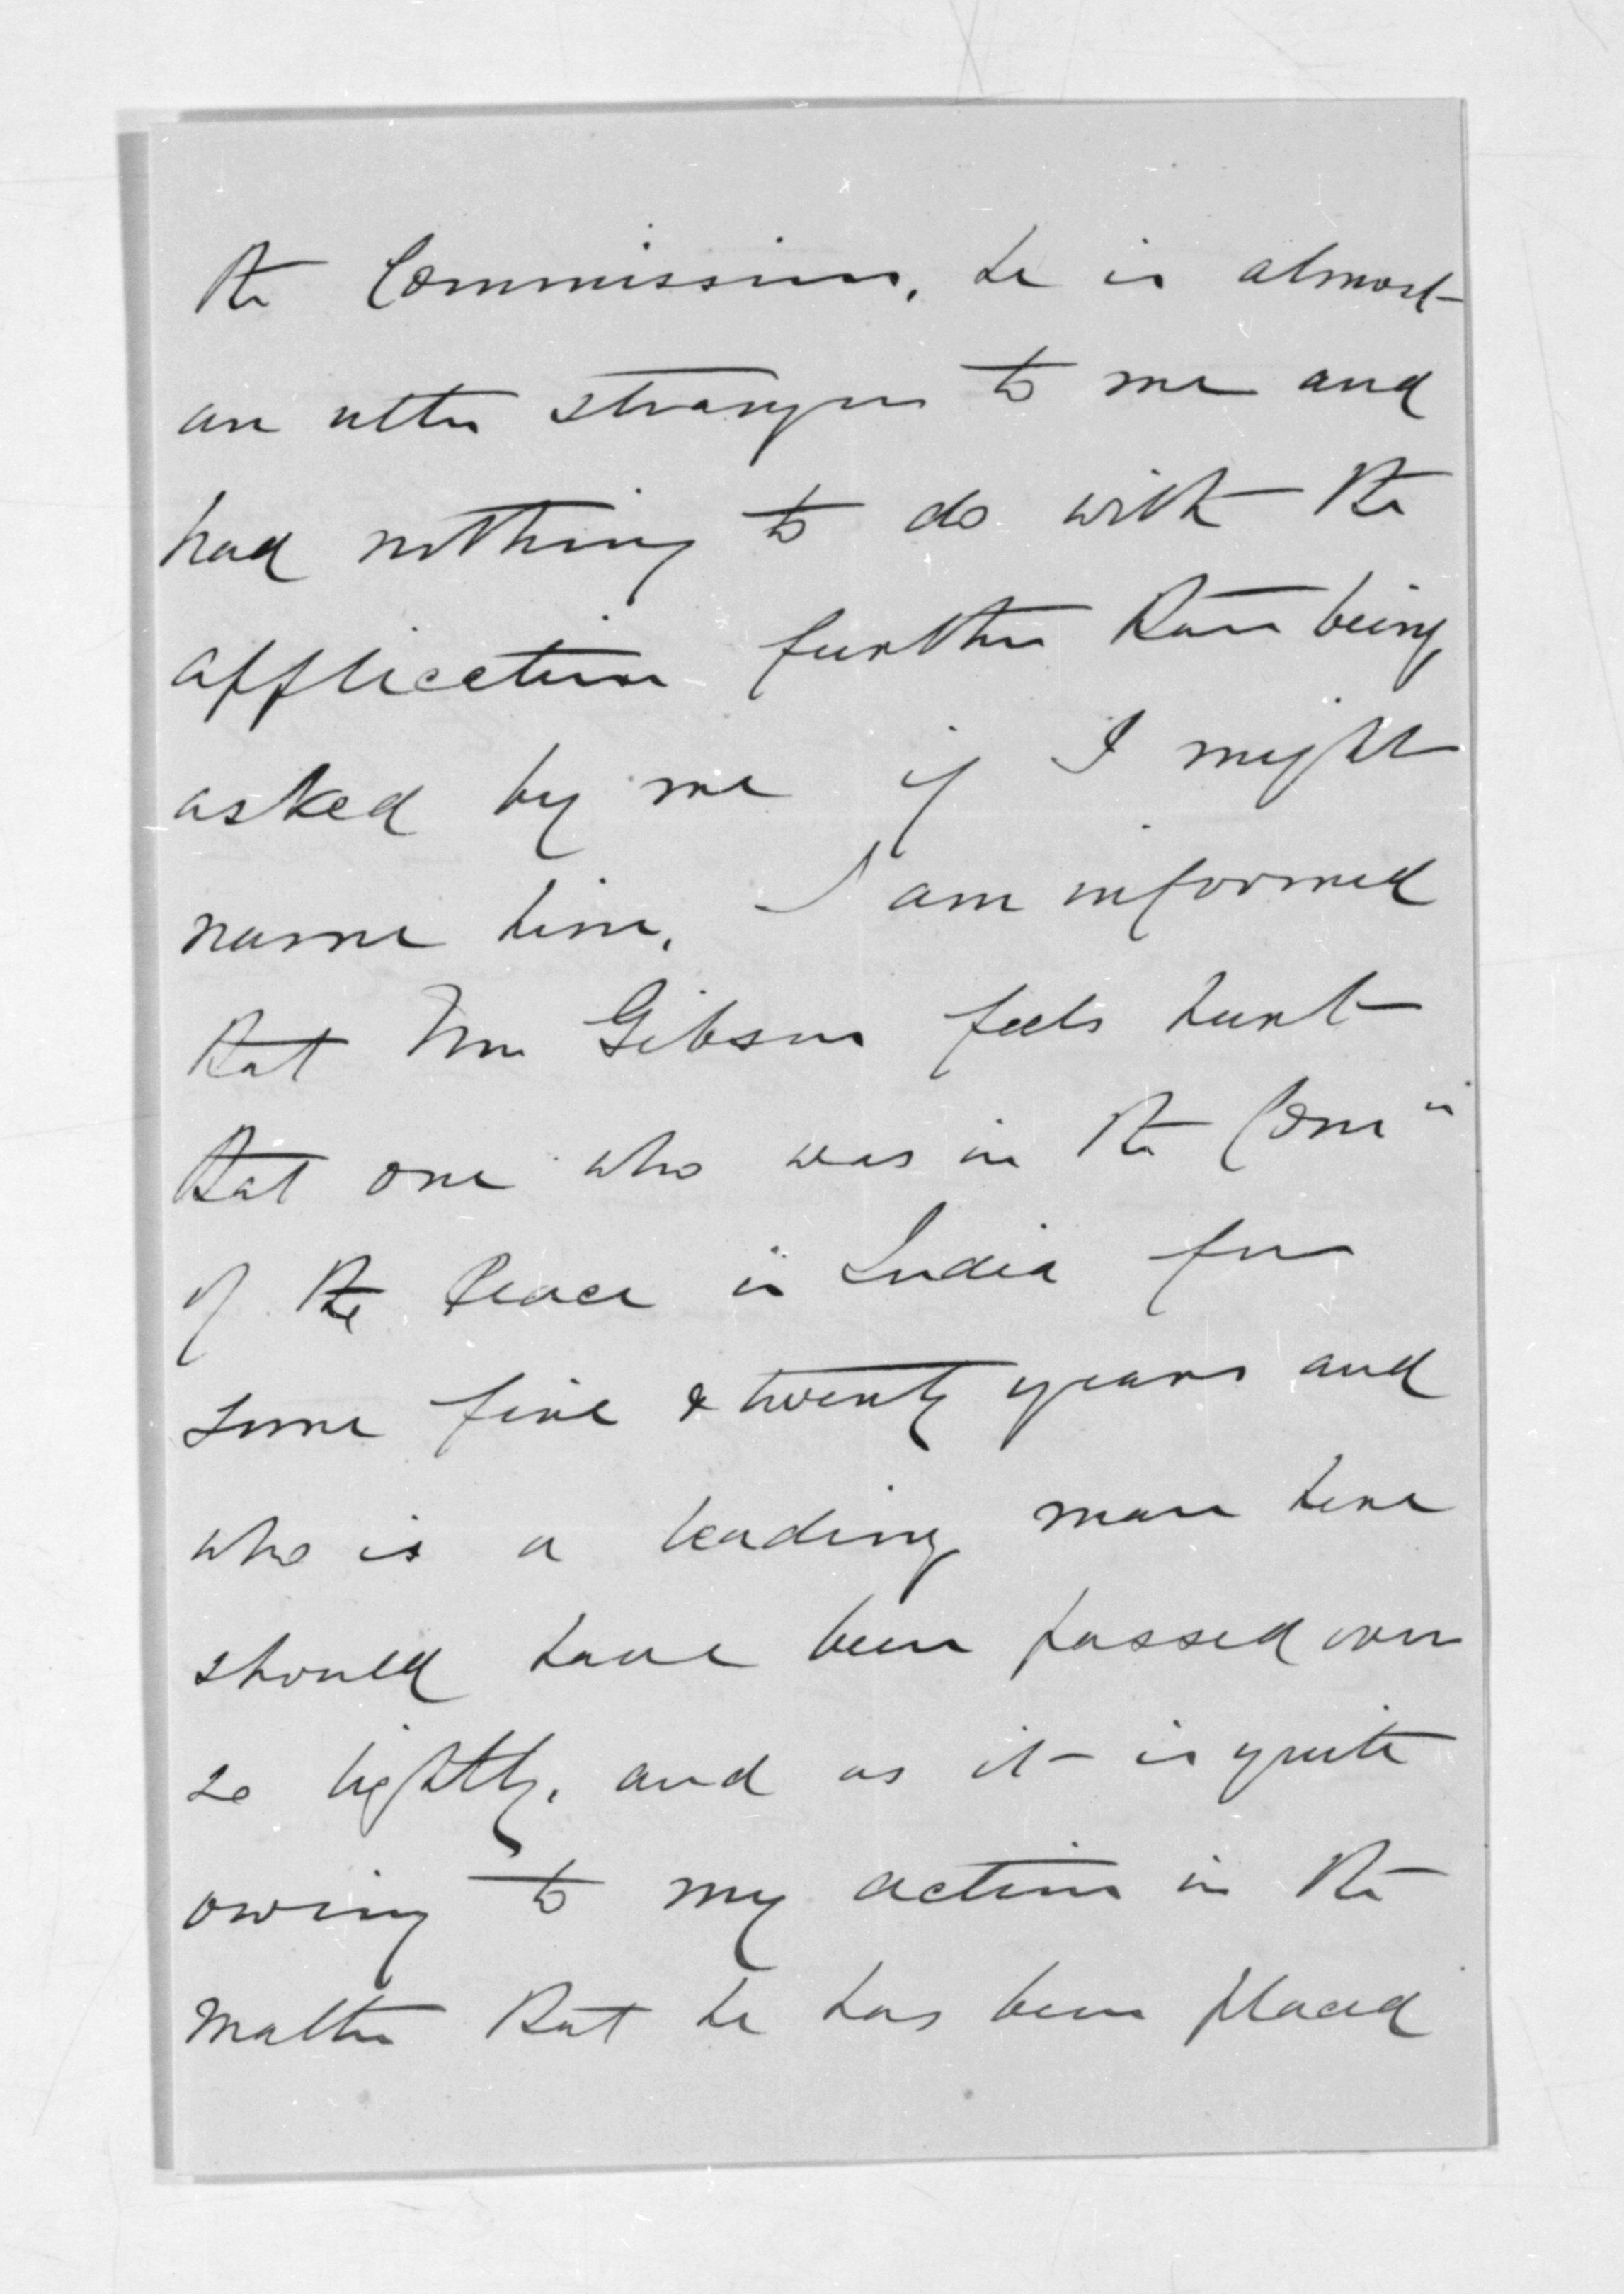 the Commission, he is almost
an utter stranger to me and
had nothing to do with the
application further than being
asked by me if I might
name him. I am informed
that Mr Gibson feels hurt
that one who was in the Comn
of the Peace in India for
some five & twenty years and
who is a leading man here
should have been passed over
so lightly, and as it is quite
owing to my action in the
matter that he has been placed